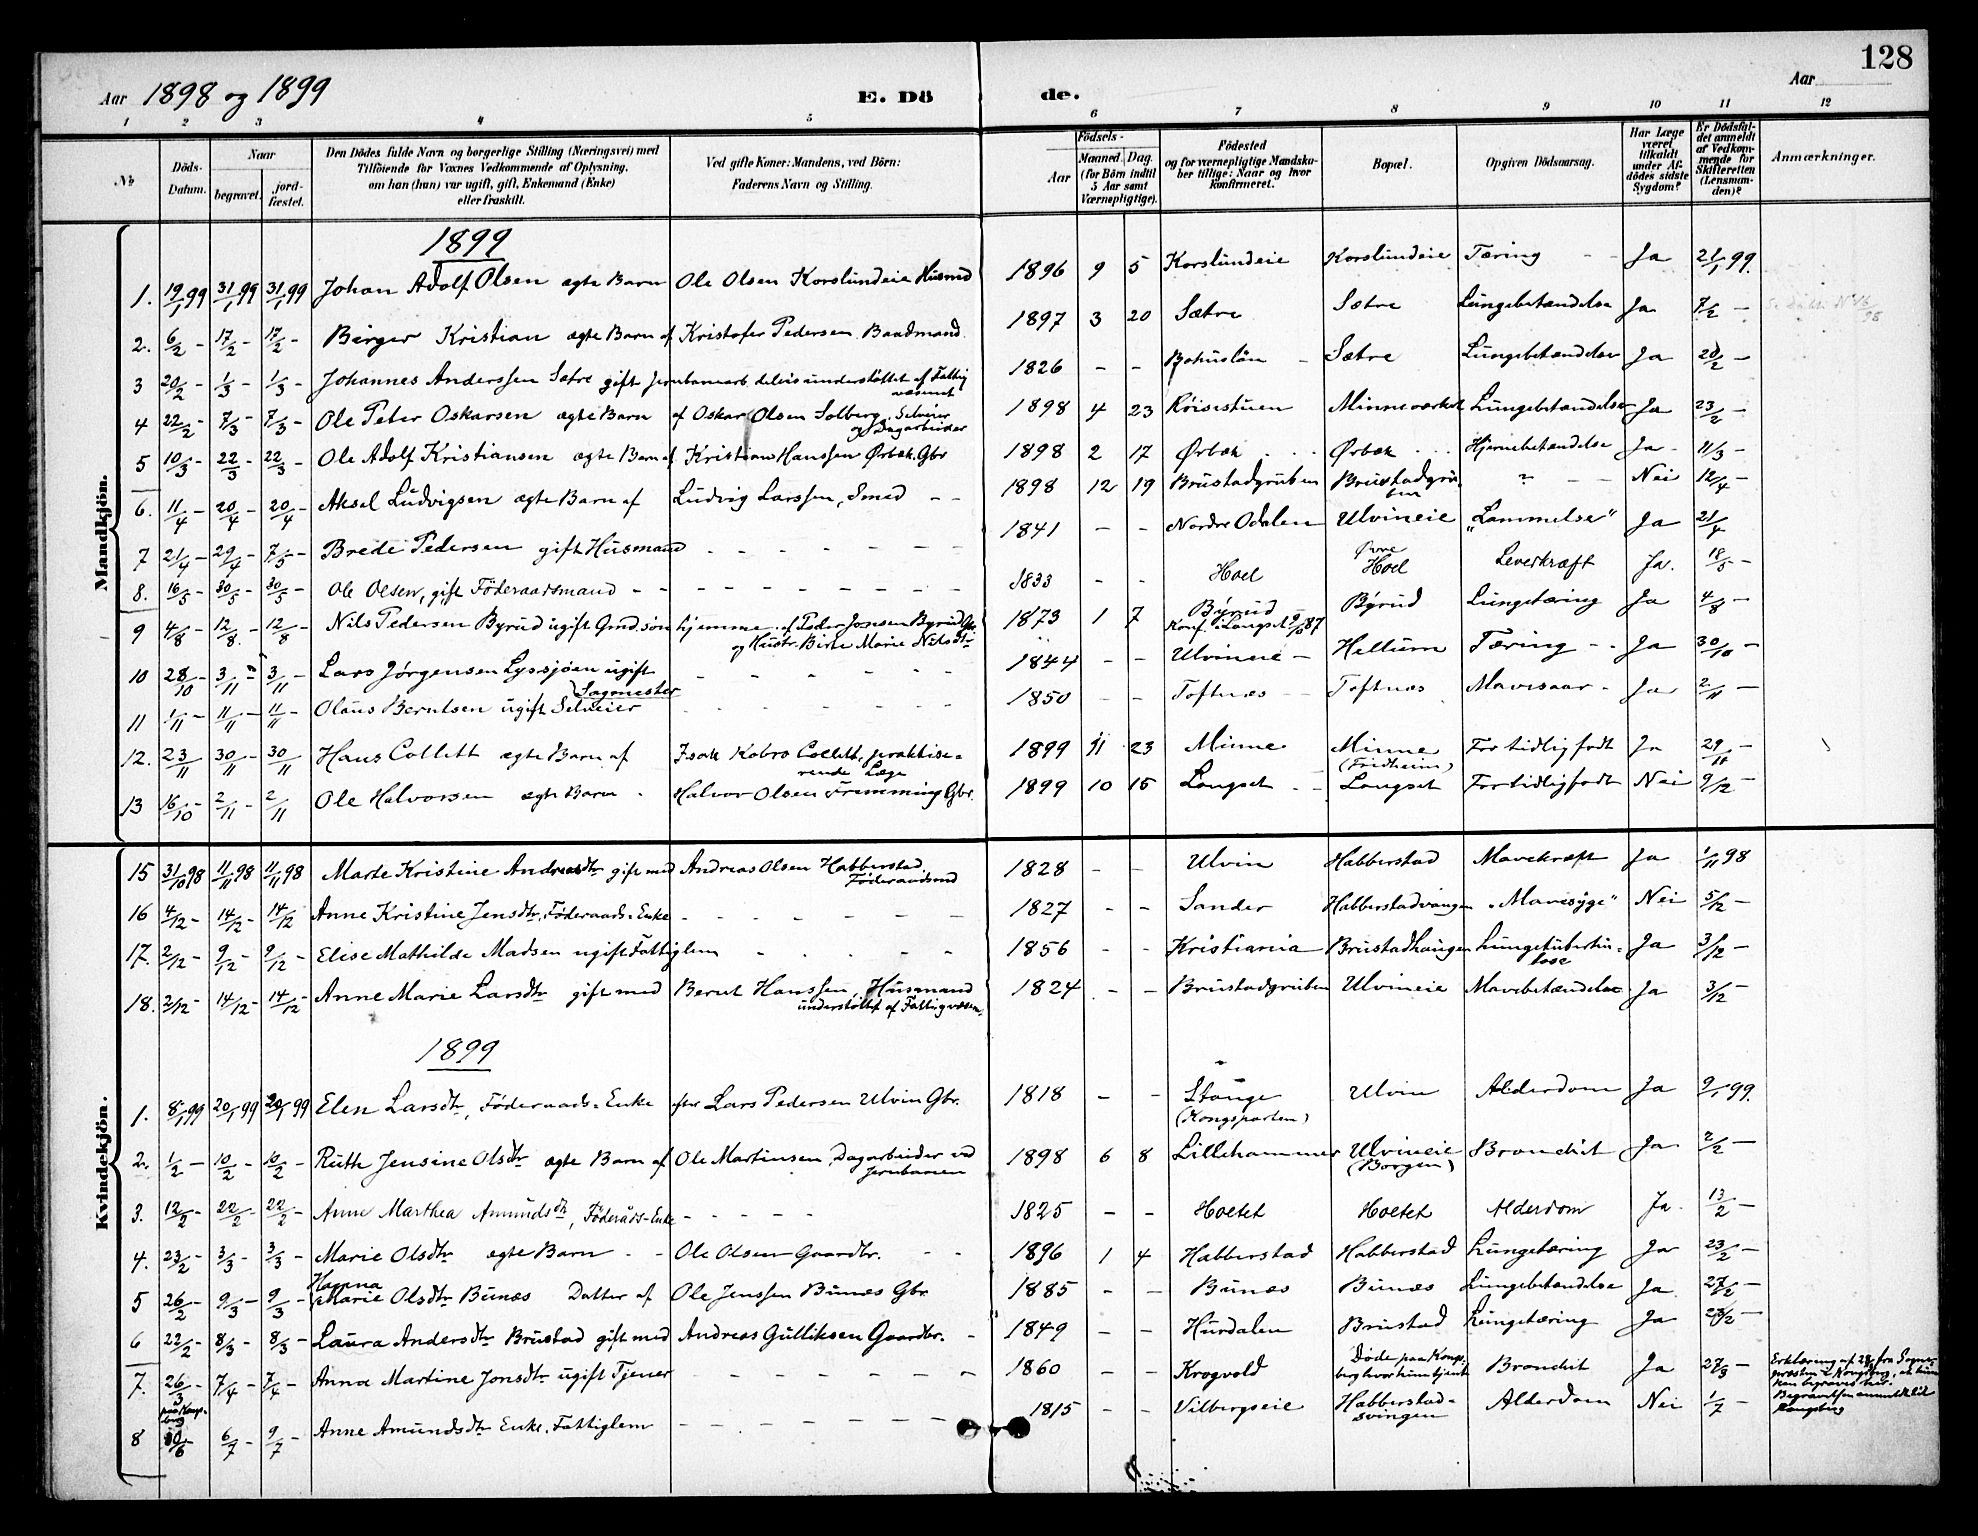 128
Aar 1898 og 1899 E. Dö de. Aar
1 2 3 4 5 6 7 8 9 10 11 12
№ Döds-Datum. Naar begravet. jord-fæstet. Den Dödes fulde Navn og borgerlige Stilling (Næringsvei) med Tilföiende for Voxnes Vedkommende af Oplysning, om han (hun) var ugift, gift, Enkemand (Enke) eller fraskilt. Ved gifte Koner: Mandens, ved Börn: Faderens Navn og Stilling. Födsels- Aar Maaned. Dag. (for Börn indtil 5 Aar samt Værnepligtige). Födested og for værnepligtige Mandskaber tillige: Naar og hvor konfirmeret. Bopæl. Opgiven Dödsaarsag. Har Læge været tilkaldt under Afdödes sidste Sygdom? Er Dödsfaldet anmeldt af Vedkommende for Skifteretten (Lensmanden)? Anmærkninger.
Mandkjön.
1899
1. 19/1 99 31/1 99 31/1 99 Johan Adolf Olsen ægte Barn Ole Olsen Korslundeie Husmd 1896 9 5 Korslundeie Korslundeie Tæring Ja 21/1 99.
2. 6/2 - 17/2 - 17/2 - Birger Kristian ægte Barn af Kristofer Pedersen Baadmand 1897 3 20 Sætre Sætre Lungebetændelse Ja 7/2 -
3 20/2 - 1/3 - 1/3 - Johannes Anderssen Sætre gift Jernbanearb. delvis understöttet af Fattigvæsenet 1826 - - Bohuslän Sætre Lungebetændelse Ja 20/2 -
4 22/2 - 7/3 - 7/3 - Ole Peter Oskarsen ægte Barn af Oskar Olsen Solberg, Selveier og Dagarbeider 1898 4 23 Röisestuen Minneværket Lungebetændelse Ja 23/2 -
5 10/3 - 22/3 - 22/3 - Ole Adolf Kristiansen ægte Barn af Kristian Hanssen Ørbæk Gbr 1898 2 17 Ørbæk Ørbæk Hjernebetændelse Ja 11/3 -
6. 11/4 - 20/4 - 20/4 - Aksel Ludvigsen ægte Barn af Ludvig Larssen, Smed 1898 12 19 Brustadgruben Brustadgruben ? Nei 12/4 -
7 21/4 - 29/4 - 7/5 - Brede Pedersen gift Husmand 1841 - - Nordre Odalen Ulvineie "Lammelse" Ja 21/4
8. 16/5 - 30/5 - 30/5 - Ole Olsen, gift Föderaadsmand 1833 - - Hoel Øvre Hoel Leverkræft Ja. 18/5 -
9 4/8 - 12/8 - 12/8 - Nils Pedersen Byrud ugift Gmd.sön hjemme af Peder Jonsen Byrud Gbr og Hustr. Birte Marie Nilsdtr 1873 1 7 Byrud Konf. i Langset 2/10 87 Byrud Lungetæring Ja 4/8 -
10 28/10 - 3/11 - 3/11 - Lars Jørgensen Lyssjöen ugift Sagmester 1844 - - Ulvineie Hellum Tæring Ja 30/10 -
11 1/11 - 11/11 - 11/11 - Olaus Berntsen ugift Selveier 1850 - Toftnæs Toftnæs Mavesaar Ja 2/11 -
12. 23/11 30/11 - 30/11 Hans Collett ægte Barn af Isak Kobro Collett, praktiserende Læge 1899 11 23 Minne Minne (Fridheim) For tidlig født Ja 29/11 -
13 16/10 - 2/11 - 2/11 Ole Halvorsen ægte Barn Halvor Olsen Fremming Gbr. 1899 10 15 Langset Langset For tidlig født Nei 9/12 -
Kvindekjön.
15 31/10 98 11/11 98 11/11 98 Marte Kristine Andreasdtr gift med Andreas Olsen Habberstad, Föderaadsmd 1828 - - Ulvin Habberstad Mavekræft Ja 1/11 98
16 4/12 - 14/12 - 14/12 Anne Kristine Jensdtr, Föderaads-Enke 1827 - - Sander Habberstadvangen "Mavesyge" Nei 5/12 -
17. 2/12 - 9/12 - 9/12 - Elise Mathilde Madsen ugift Fattiglem 1856 - - Kristiania Brustadhaugen Lungetuberkulose Ja 3/12 -
18. 2/12 - 14/12 - 14/12 - Anne Marie Larsdtr gift med Bernt Hanssen, Husmand understöttet af Fattigvæsen. 1824 - - Brustadgruben Ulvineie Mavebetændelse Ja 3/12 -
1899
1. 8/1 99 20/1 99 20/1 99 Elen Larsdtr, Föderaads-Enke efter Lars Pedersen Ulvin Gbr. 1818 - - Stange (Kongsparten) Ulvin Alderdom Ja 9/1 99.
2. 1/2 - 10/2 - 10/2 - Ruth Jensine Olsdtr ægte Barn af Ole Martinsen, Dagarbeider ved Jernbanen 1898 6 8 Lillehammer Ulvineie (Borgen) Bronchit Ja 2/2 -
3. 12/2 - 22/2 - 22/2 - Anne Marthea Amundsdtr, Föderåds-Enke 1825 - - Hoetet Hoetet Alderdom Ja. 13/2 -
4. 23/2 - 3/3 - 3/3 - Marie Olsdtr ægte Barn Ole Olsen Gaardbr. 1896 1 4 Habberstad Habberstad Lungetæring Ja 23/2 -
5 26/2 - 9/3 - 9/3 - Hanna Marie Olsdtr Bunæs Datter af Ole Jenssen Bunæs Gbr 1885 - - Bunæs Bunæs Lungebetændelse Ja 27/2 -
6 22/2 - 8/3 - 8/3 - Laura Andersdtr Brustad gift med Andreas Gulliksen Gaardbr. 1849 - - Hurdalen Brustad Lungetæring Ja 23/2 -
7. 26/3 paa Kongsberg 7/4 - 7/4 - Anna Martine Jonsdtr ugift Tjener 1860 - - Krogvold Døde paa Kongsberg hvor hun tjente Bronchit Ja 27/3 - Erklæring af 28/3 fra Sognepræsten i Kongsberg, at hun kan begraves her. Begravelsen anmeldt til Kongsberg
8 30/6 6/7 - 9/7 - Anne Amundsdtr Enke. Fattiglem 1815 - - Vilbergseie Habberstadsvingen Alderdom Nei 1/7 -